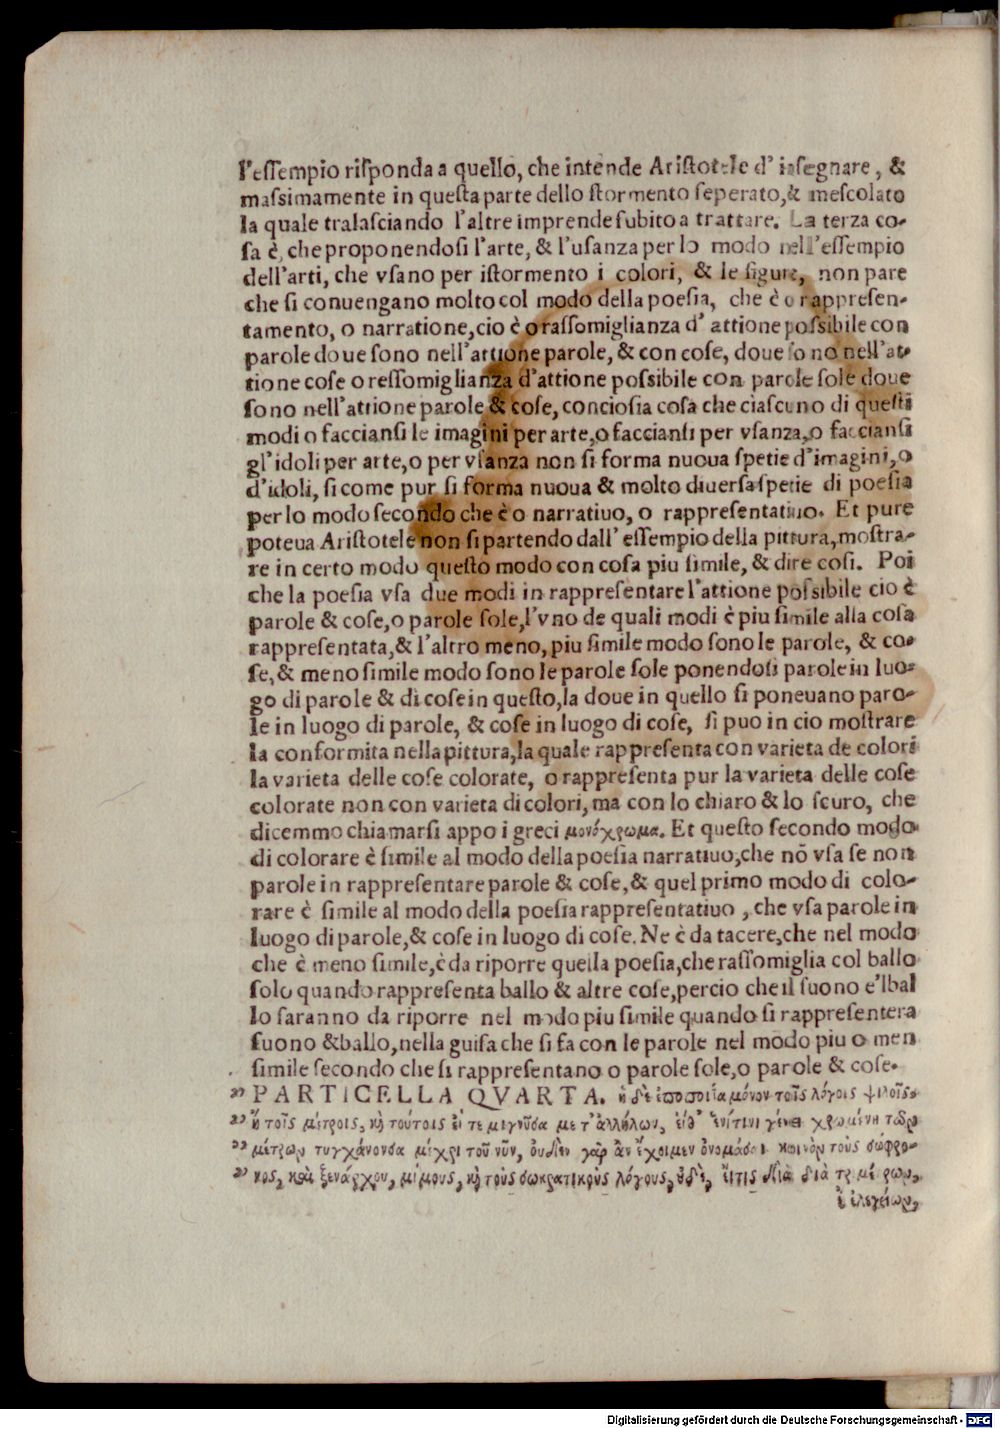 l'essempio risponda a quello, che intende Aristotele d' insegnare, &
massimamente in questa parte dello stormento seperato, & mescolato
la quale tralasciando l'altre imprende subito a trattare. La terza co-
sa è, che proponendosi l'arte, & l'usanza per lo modo nell'essempio
dell'arti, che vsano per istormento i colori, & le figure, non pare
che si conuengano molto col modo della poesia, che è o rappresen-
tamento, o narratione, cio è o rassomiglianza d' attione possibile con
parole doue sono nell'attione parole, & con cose, doue sono nell'at-
tione cose o ressomiglianza d'attione possibile con parole sole doue
sono nell'attione parole & cose, conciosia cosa che ciascuno di questi
modi o faccianſi le imagini per arte, o faccianſi per vsanza, o faccianſi
gl'idoli per arte, o per vsanza non si forma nuoua spetie d'imagini, o
d'idoli, si come pur si forma nuoua & molto diuersa spetie di poesia
per lo modo secondo che è o narratiuo, o rappresentatiuo. Et pure
poteua Aristotele non si partendo dall' essempio della pittura, mostra-
re in certo modo questo modo con cosa piu simile, & dire cosi. Poi
che la poesia vsa due modi in rappresentare l'attione possibile cio è
parole & cose, o parole sole, l'vno de quali modi è piu simile alla cosa
rappresentata, & l'altro meno, piu simile modo sono le parole, & co-
se, & meno simile modo sono le parole sole ponendosi parole in luo-
go di parole & di cose in questo, la doue in quello si poneuano paro-
le in luogo di parole, & cose in luogo di cose, si puo in cio mostrare
la conformita nella pittura, la quale rappresenta con varieta de colori
la varieta delle cose colorate, o rappresenta pur la varieta delle cose
colorate non con varieta di colori, ma con lo chiaro & lo scuro, che
dicemmo chiamarsi appo i greci μονόχρωμα. Et questo secondo modo
di colorare è simile al modo della poesia narratiuo, che nō vsa se non
parole in rappresentare parole & cose, & quel primo modo di colo-
rare è simile al modo della poesia rappresentatiuo, che vsa parole in
luogo di parole, & cose in luogo di cose. Ne è da tacere, che nel modo
che è meno simile, è da riporre quella poesia, che rassomiglia col ballo
solo quando rappresenta ballo & altre cose, percio che il suono e'l bal
lo saranno da riporre nel modo piu simile quando si rappresentera
suono & ballo, nella guisa che si fa con le parole nel modo piu o men
simile secondo che si rappresentano o parole sole, o parole & cose.
" PARTICELLA QVARTA. ἡ δὲ ἐποποιΐα μόνον τοῖς λόγοις ψιλοῖς
" ἢ τοῖς μέτροις, καὶ τούτοις εἴ τε μιγνῦσα μετ' ἀλλήλων, εἴθ' ἑνί τινι γένει χρωμένη τῶν
" μέτρων τυγχάνουσα μέχρι τοῦ νῦν, οὐδὲν γὰρ ἂν ἔχοιμεν ὀνομάσαι κοινὸν τοὺς σώφρο-
" νος, καὶ ξενάρχου, μίμους, καὶ τοὺς σωκρατικοὺς λόγους, οὐδὲ, εἴ τις διὰ τριμέτρων,
ἢ ἐλεγείων,
Digitalisierung gefördert durch die Deutsche Forschungsgemeinschaft - DFG